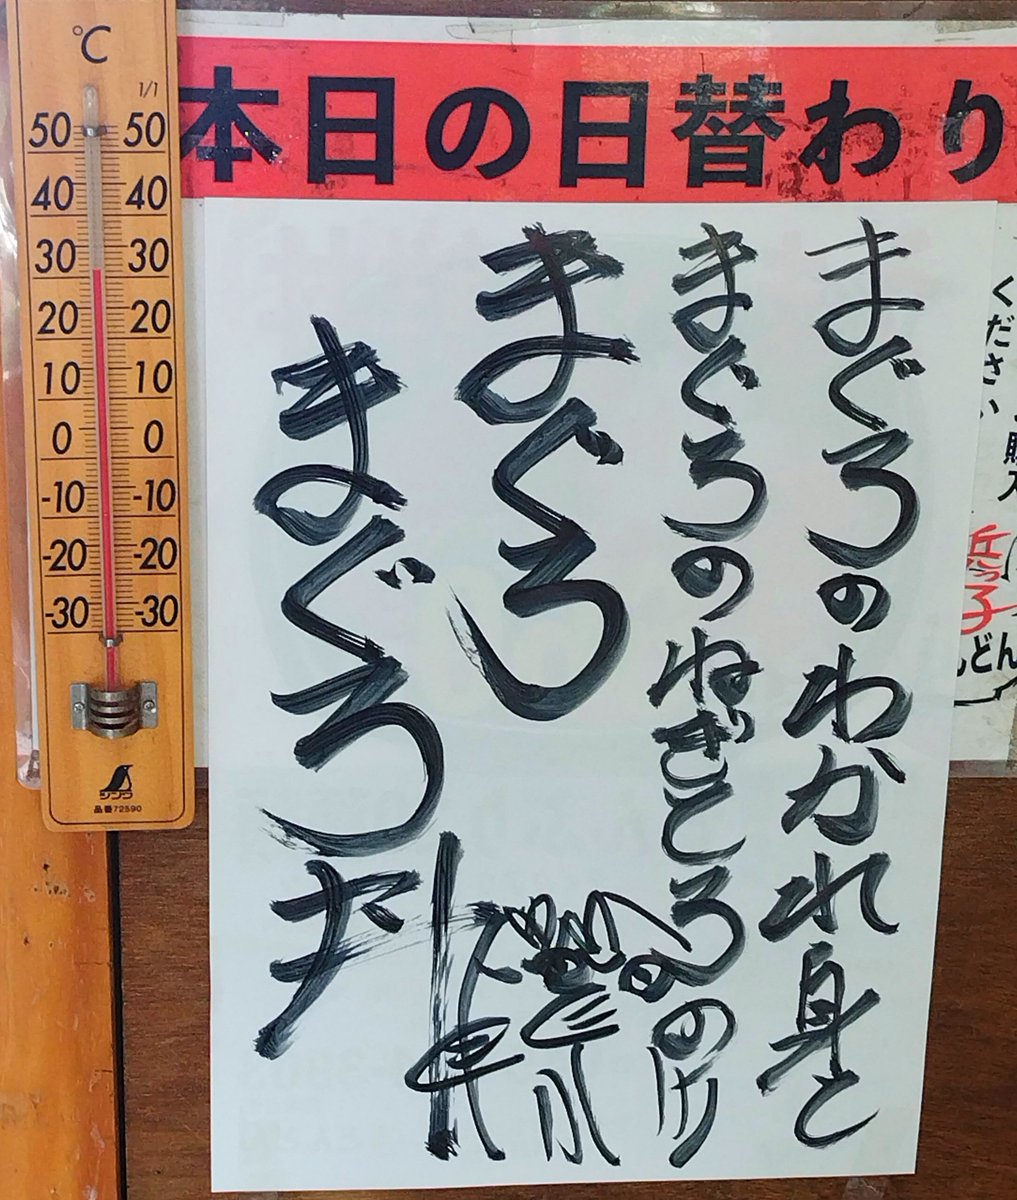 本日の日替わり
まぐろのわかれ身と
まぐろのねぎところのっけ
まぐろ
まぐろデ
ください
近っ子
どん
℃
1/1
50 50
40 40
30 30
20 20
10 10
0 0
-10 -10
-20 -20
-30 -30
シンワ
品番72590